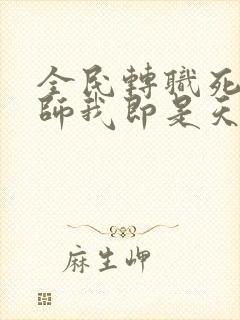 全民轉職死
師我即是天
麻生岬